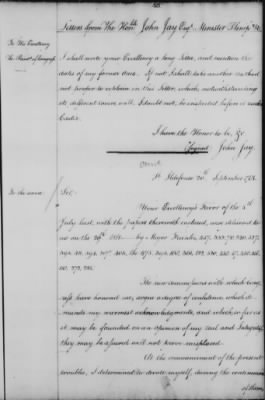 Letters from The Hon.ble John Jay Esq.r Minister Plenip.y &c.
To His Excellency
the Presid.t of Congress
I shall write your Excellency a long letter, and mention the
dates of my former ones. If not I shall take another method
not proper to explain in this Letter, which notwithstanding
its different covers will, I doubt not, be inspected before it reaches
Cadiz.
I have the Honor to be, &c
(Signed) John Jay.
S.t Ildefonso 20th September 1781.
To the same
Sir,
Your Excellency's Favor of the 5th
July last, with the papers therewith enclosed, were delivered to
me on the 29th Ulto. by Major Franks.
The new commissions with which Congress
have honored me, argue a degree of confidence which demands
my warmest acknowledgments, and which, so far as
it may be founded on an opinion of my zeal and Integrity,
they may be assured will not prove misplaced.
At the commencement of the present
troubles, I determined to devote myself, during the continuance
of them,